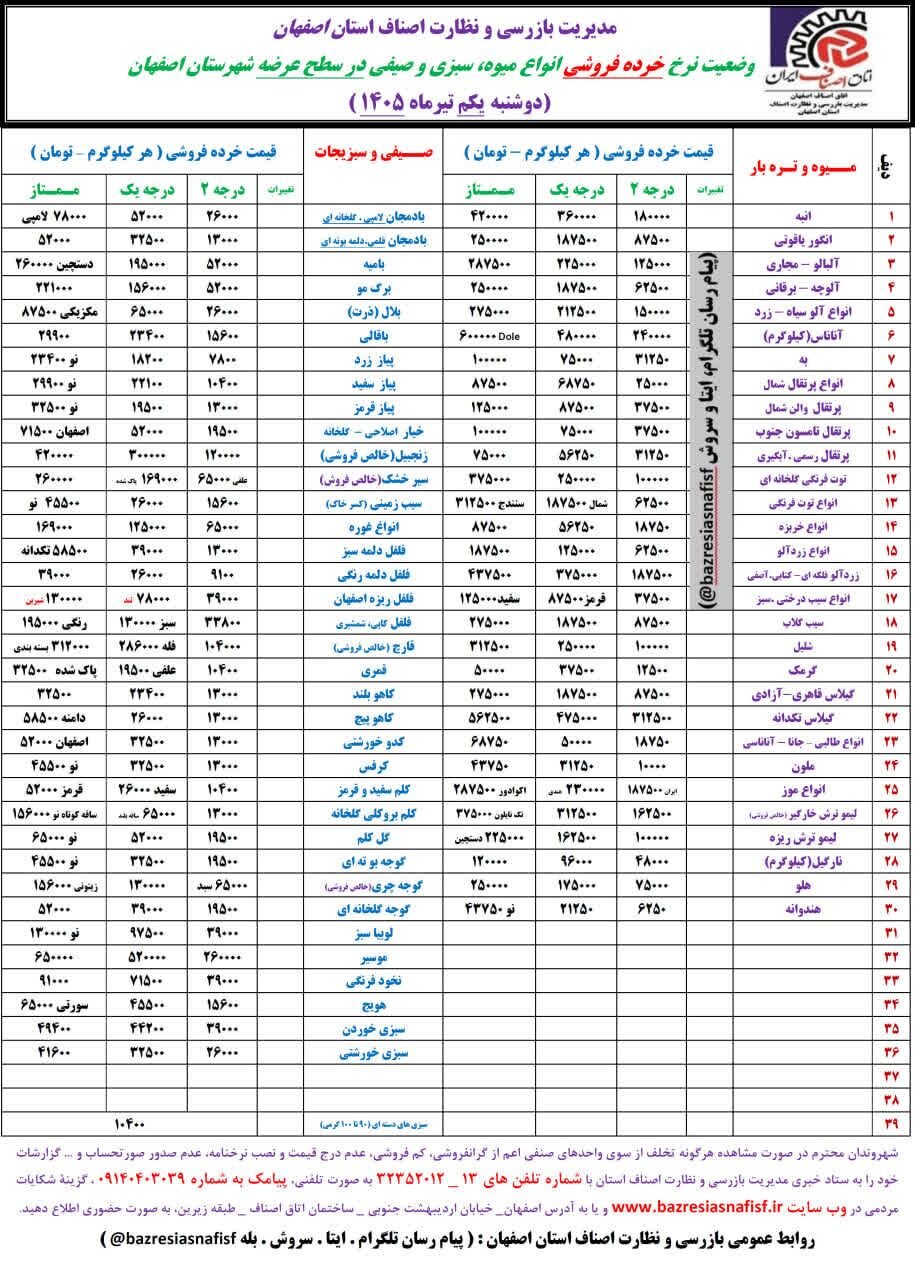 اتاق اصناف ایران
اتاق اصناف اصفهان
مدیریت بازرسی و نظارت اصناف
استان اصفهان
مدیریت بازرسی و نظارت اصناف استان اصفهان
وضعیت نرخ خرده فروشی انواع میوه، سبزی و صیفی در سطح عرضه شهرستان اصفهان
(دوشنبه یکم تیرماه ۱۴۰۵ )
ردیف میوه و تره بار قیمت خرده فروشی ( هر کیلوگرم – تومان ) صیفی و سبزیجات قیمت خرده فروشی ( هر کیلوگرم - تومان )
تغییرات درجه ۲ درجه یک ممتاز تغییرات درجه ۲ درجه یک ممتاز
۱ انبه ۱۸۰۰۰۰ ۳۶۰۰۰۰ ۴۲۰۰۰۰ بادمجان لامپی . گلخانه ای ۲۶۰۰۰ ۵۲۰۰۰ ۷۸۰۰۰ لامپی
۲ انگور یاقوتی ۸۷۵۰۰ ۱۸۷۵۰۰ ۲۵۰۰۰۰ بادمجان قلمی.دلمه بوته ای ۱۳۰۰۰ ۳۲۵۰۰ ۵۲۰۰۰
۳ آلبالو – مجاری ۱۲۵۰۰۰ ۲۲۵۰۰۰ ۲۸۷۵۰۰ بامیه ۵۲۰۰۰ ۱۹۵۰۰۰ دستچین ۲۶۰۰۰۰
۴ آلوچه – برقانی ۶۲۵۰۰ ۱۸۷۵۰۰ ۲۵۰۰۰۰ برگ مو ۵۲۰۰۰ ۱۵۶۰۰۰ ۲۲۱۰۰۰
۵ انواع آلو سیاه – زرد ۱۵۰۰۰۰ ۲۱۲۵۰۰ ۲۷۵۰۰۰ بلال (ذرت) ۲۶۰۰۰ ۶۵۰۰۰ مکزیکی ۸۷۵۰۰
۶ آناناس(کیلوگرم) ۲۴۰۰۰۰ ۴۸۰۰۰۰ Dole ۶۰۰۰۰۰ باقالی ۱۵۶۰۰ ۲۳۴۰۰ ۲۹۹۰۰
۷ به ۳۱۲۵۰ ۷۵۰۰۰ ۱۰۰۰۰۰ پیاز زرد ۷۸۰۰ ۱۸۲۰۰ نو ۲۳۴۰۰
۸ انواع پرتقال شمال ۲۵۰۰۰ ۶۸۷۵۰ ۸۷۵۰۰ پیاز سفید ۱۰۴۰۰ ۲۲۱۰۰ نو ۲۹۹۰۰
۹ پرتقال والن شمال ۳۷۵۰۰ ۸۷۵۰۰ ۱۲۵۰۰۰ پیاز قرمز ۱۳۰۰۰ ۱۹۵۰۰ نو ۳۲۵۰۰
۱۰ پرتقال تامسون جنوب ۳۷۵۰۰ ۷۵۰۰۰ ۱۰۰۰۰۰ خیار اصلاحی – گلخانه ۱۹۵۰۰ ۵۲۰۰۰ اصفهان ۷۱۵۰۰
۱۱ پرتقال رسمی .آبگیری ۳۱۲۵۰ ۵۶۲۵۰ ۷۵۰۰۰ زنجبیل(خالص فروشی) ۱۲۰۰۰۰ ۳۰۰۰۰۰ ۴۲۰۰۰۰
۱۲ توت فرنگی گلخانه ای ۱۰۰۰۰۰ ۲۵۰۰۰۰ ۳۷۵۰۰۰ سیر خشک(خالص فروش) علفی ۶۵۰۰۰ ۱۶۹۰۰۰ پاک شده ۲۶۰۰۰۰
۱۳ انواع توت فرنگی ۶۲۵۰۰ شمال ۱۸۷۵۰۰ سنندج ۳۱۲۵۰۰ سیب زمینی (کسر خاک) ۱۵۶۰۰ ۲۶۰۰۰ ۴۵۵۰۰ نو
۱۴ انواع خربزه ۱۸۷۵۰ ۵۶۲۵۰ ۸۷۵۰۰ انواع غوره ۶۵۰۰۰ ۱۲۵۰۰۰ ۱۶۹۰۰۰
۱۵ انواع زردآلو ۶۲۵۰۰ ۱۲۵۰۰۰ ۱۸۷۵۰۰ فلفل دلمه سبز ۱۳۰۰۰ ۳۹۰۰۰ ۵۸۵۰۰ تکدانه
۱۶ زردآلو قلگه ای – کتابی.آصفی ۱۸۷۵۰۰ ۳۷۵۰۰۰ ۴۳۷۵۰۰ فلفل دلمه رنگی ۹۱۰۰ ۲۶۰۰۰ ۳۹۰۰۰
۱۷ انواع سیب درختی .سبز ۳۷۵۰۰ قرمز ۸۷۵۰۰ سفید ۱۲۵۰۰۰ فلفل ریزه اصفهان ۳۹۰۰۰ ۷۸۰۰۰ تند ۱۳۰۰۰۰ شیرین
۱۸ سیب گلاب ۸۷۵۰۰ ۱۸۷۵۰۰ ۲۷۵۰۰۰ فلفل کاپی، شمشیری ۳۳۸۰۰ سبز ۱۳۰۰۰۰ رنگی ۱۹۵۰۰۰
۱۹ شلیل ۱۰۰۰۰۰ ۲۵۰۰۰۰ ۳۱۲۵۰۰ قارچ (خالص فروشی) ۱۰۴۰۰۰ فله ۲۸۶۰۰۰ ۳۱۲۰۰۰ بسته بندی
۲۰ گرمک ۱۲۵۰۰ ۳۷۵۰۰ ۵۰۰۰۰ قمری ۱۰۴۰۰ علفی ۱۹۵۰۰ پاک شده ۳۲۵۰۰
۲۱ گیلاس قاهری–آزادی ۸۷۵۰۰ ۱۸۷۵۰۰ ۲۷۵۰۰۰ کاهو بلند ۱۳۰۰۰ ۲۳۴۰۰ ۳۲۵۰۰
۲۲ گیلاس تکدانه ۳۱۲۵۰۰ ۴۷۵۰۰۰ ۵۶۲۵۰۰ کاهو پیچ ۱۳۰۰۰ ۲۶۰۰۰ دامنه ۵۸۵۰۰
۲۳ انواع طالبی – جانا – آناناسی ۱۸۷۵۰ ۵۰۰۰۰ ۶۸۷۵۰ کدو خورشتی ۱۳۰۰۰ ۳۲۵۰۰ اصفهان ۵۲۰۰۰
۲۴ ملون ۱۰۰۰۰ ۳۱۲۵۰ ۴۳۷۵۰ کرفس ۱۳۰۰۰ ۳۲۵۰۰ نو ۴۵۵۰۰
۲۵ انواع موز ایران ۱۸۷۵۰۰ ۲۳۰۰۰۰ هندی اکوادور ۲۸۷۵۰۰ کلم سفید و قرمز ۱۰۴۰۰ سفید ۲۶۰۰۰ قرمز ۵۲۰۰۰
۲۶ لیمو ترش خارگیر (خالص فروشی) ۱۶۲۵۰۰ ۳۱۲۵۰۰ تک نایلون ۳۷۵۰۰۰ کلم بروکلی گلخانه ۱۳۰۰۰ ۶۵۰۰۰ ساقه بلند ساقه کوتاه نو ۱۵۶۰۰۰
۲۷ لیمو ترش ریزه ۱۰۰۰۰۰ ۱۶۲۵۰۰ ۲۲۵۰۰۰ دستچین گل کلم ۱۹۵۰۰ ۵۲۰۰۰ نو ۶۵۰۰۰
۲۸ نارگیل(کیلوگرم) ۴۸۰۰۰ ۹۶۰۰۰ ۱۲۰۰۰۰ گوجه بو ته ای ۱۹۵۰۰ ۳۲۵۰۰ نو ۴۵۵۰۰
۲۹ هلو ۷۵۰۰۰ ۱۷۵۰۰۰ ۲۵۰۰۰۰ گوجه چری(خالص فروشی) ۶۵۰۰۰ سبد ۱۳۰۰۰۰ زیتونی ۱۵۶۰۰۰
۳۰ هندوانه ۶۲۵۰ ۲۱۲۵۰ نو ۴۳۷۵۰ گوجه گلخانه ای ۱۹۵۰۰ ۳۹۰۰۰ ۵۲۰۰۰
۳۱ لوبیا سبز ۳۹۰۰۰ ۹۷۵۰۰ نو ۱۳۰۰۰۰
۳۲ موسیر ۲۶۰۰۰۰ ۵۲۰۰۰۰ ۶۵۰۰۰۰
۳۳ نخود فرنگی ۳۹۰۰۰ ۷۱۵۰۰ ۹۱۰۰۰
۳۴ هویج ۱۵۶۰۰ ۴۵۵۰۰ سورتی ۶۵۰۰۰
۳۵ سبزی خوردن ۳۹۰۰۰ ۴۴۲۰۰ ۴۹۴۰۰
۳۶ سبزی خورشتی ۲۶۰۰۰ ۳۲۵۰۰ ۴۱۶۰۰
۳۷
۳۸
۳۹ سبزی های دسته ای (۹۰ تا ۱۰۰ گرمی) ۱۰۴۰۰
(پیام رسان تلگرام، ایتا و سروش bazresiasnafisf@)
شهروندان محترم در صورت مشاهده هرگونه تخلف از سوی واحدهای صنفی اعم از گرانفروشی، کم فروشی، عدم درج قیمت و نصب نرخنامه، عدم صدور صورتحساب و ... گزارشات
خود را به ستاد خبری مدیریت بازرسی و نظارت اصناف استان با شماره تلفن های ۱۳ _ ۳۲۳۵۲۰۱۲ به صورت تلفنی، پیامک به شماره ۰۹۱۴۰۴۰۳۰۳۹ ، گزینهٔ شکایات
مردمی در وب سایت www.bazresiasnafisf.ir و یا به آدرس اصفهان_ خیابان اردیبهشت جنوبی _ ساختمان اتاق اصناف _ طبقه زیرین، به صورت حضوری اطلاع دهید.
روابط عمومی بازرسی و نظارت اصناف استان اصفهان : ( پیام رسان تلگرام . ایتا . سروش . بله bazresiasnafisf@ )